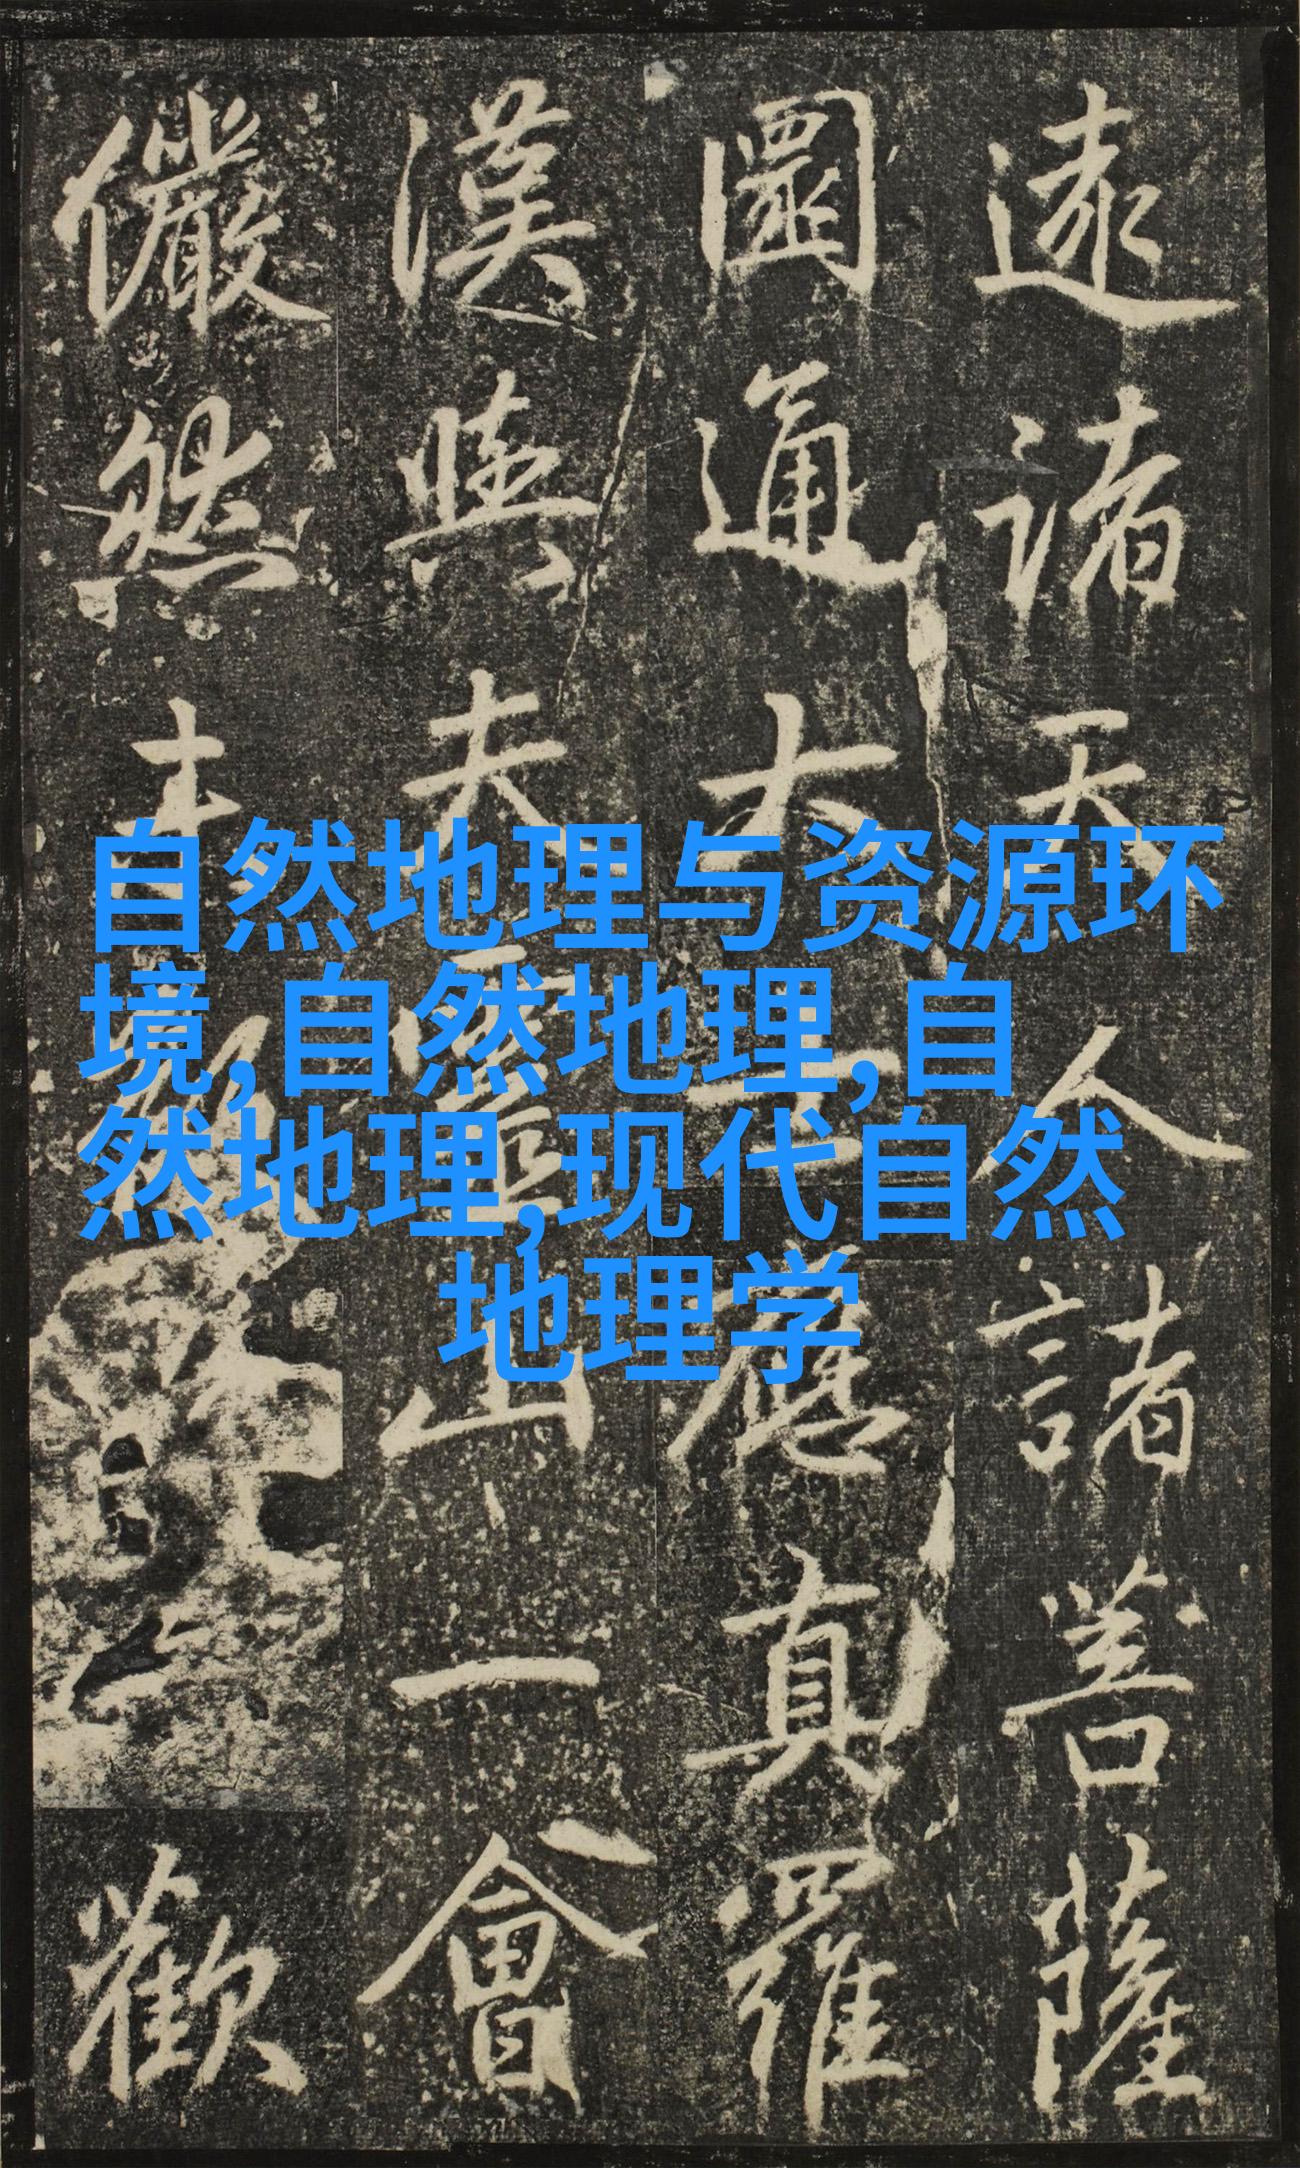 遠諸天人諸菩薩
通大士應真羅
漢與夫靈山一會
儼然未歡
自然地理与资源环
境,自然地理,自
然地理,现代自然
地理学